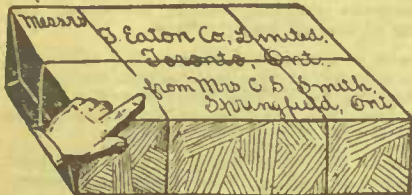 Messrs
T. Eaton Co, Limited.
Toronto, Ont.
from Mrs C S Smith,
Springfield, Ont